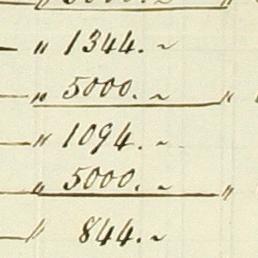 — " 1344. ~
— " 5000. ~ "
— " 1094. ~
" 5000. ~ "
— " 844. ~